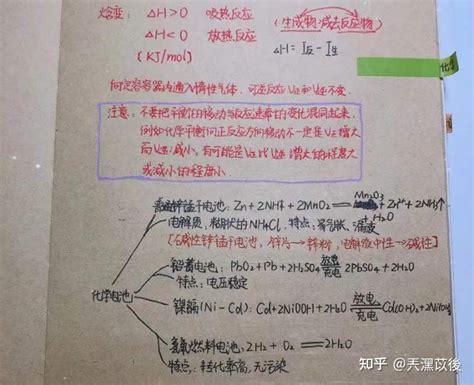 焓变: △H>0 吸热反应 (生成物减去反应物)
△H<0 放热反应 △H=I反-I生
(KJ/mol)
向定容容器内通入惰性气体,可逆反应V正和V逆不变.
注意:不要把平衡的移动与反应速率的变化混同起来,
例如化学平衡向正反应方向移动不一定是V正增大
而V逆减小,有可能是V正比V逆增大的程度大
或减小的程度小
普通锌锰干电池:Zn+2NH₄⁺+2MnO₂=Mn₂O₃+Zn²⁺+2NH₃↑
+H₂O
电解质,糊状的NH₄Cl,特点:易
[碱性锌锰干电池,锌片→锌粉,电解液中性→碱性]
化学电池
铅蓄电池:PbO₂+Pb+2H₂SO₄ 放电 充电 2PbSO₄+2H₂O
特点:电压稳定
镍镉(Ni-Cd):Cd+2NiOOH+2H₂O 放电 充电 Cd(OH)₂+2Ni(OH)
氢氧燃料电池:2H₂+O₂=2H₂O
特点:转化率高,无污染
知乎